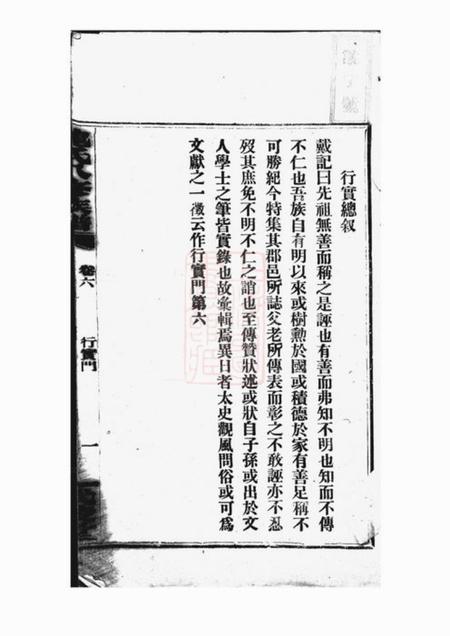 行實總叙
戴記曰先祖無善而稱之是誣也有善而弗知不明也知而不傳
不仁也吾族自有明以來或樹勲於國或積德於家有善足稱不
可勝紀今特集其郡邑所誌父老所傳表而彰之不敢誣亦不忍
歿其庶免不明不仁之誚也至傳贊狀述或狀自子孫或出於文
人學士之筆皆實錄也故彙輯焉異日者太史觀風問俗或可為
文獻之一徵云作行實門第六
卷六
行實門
一